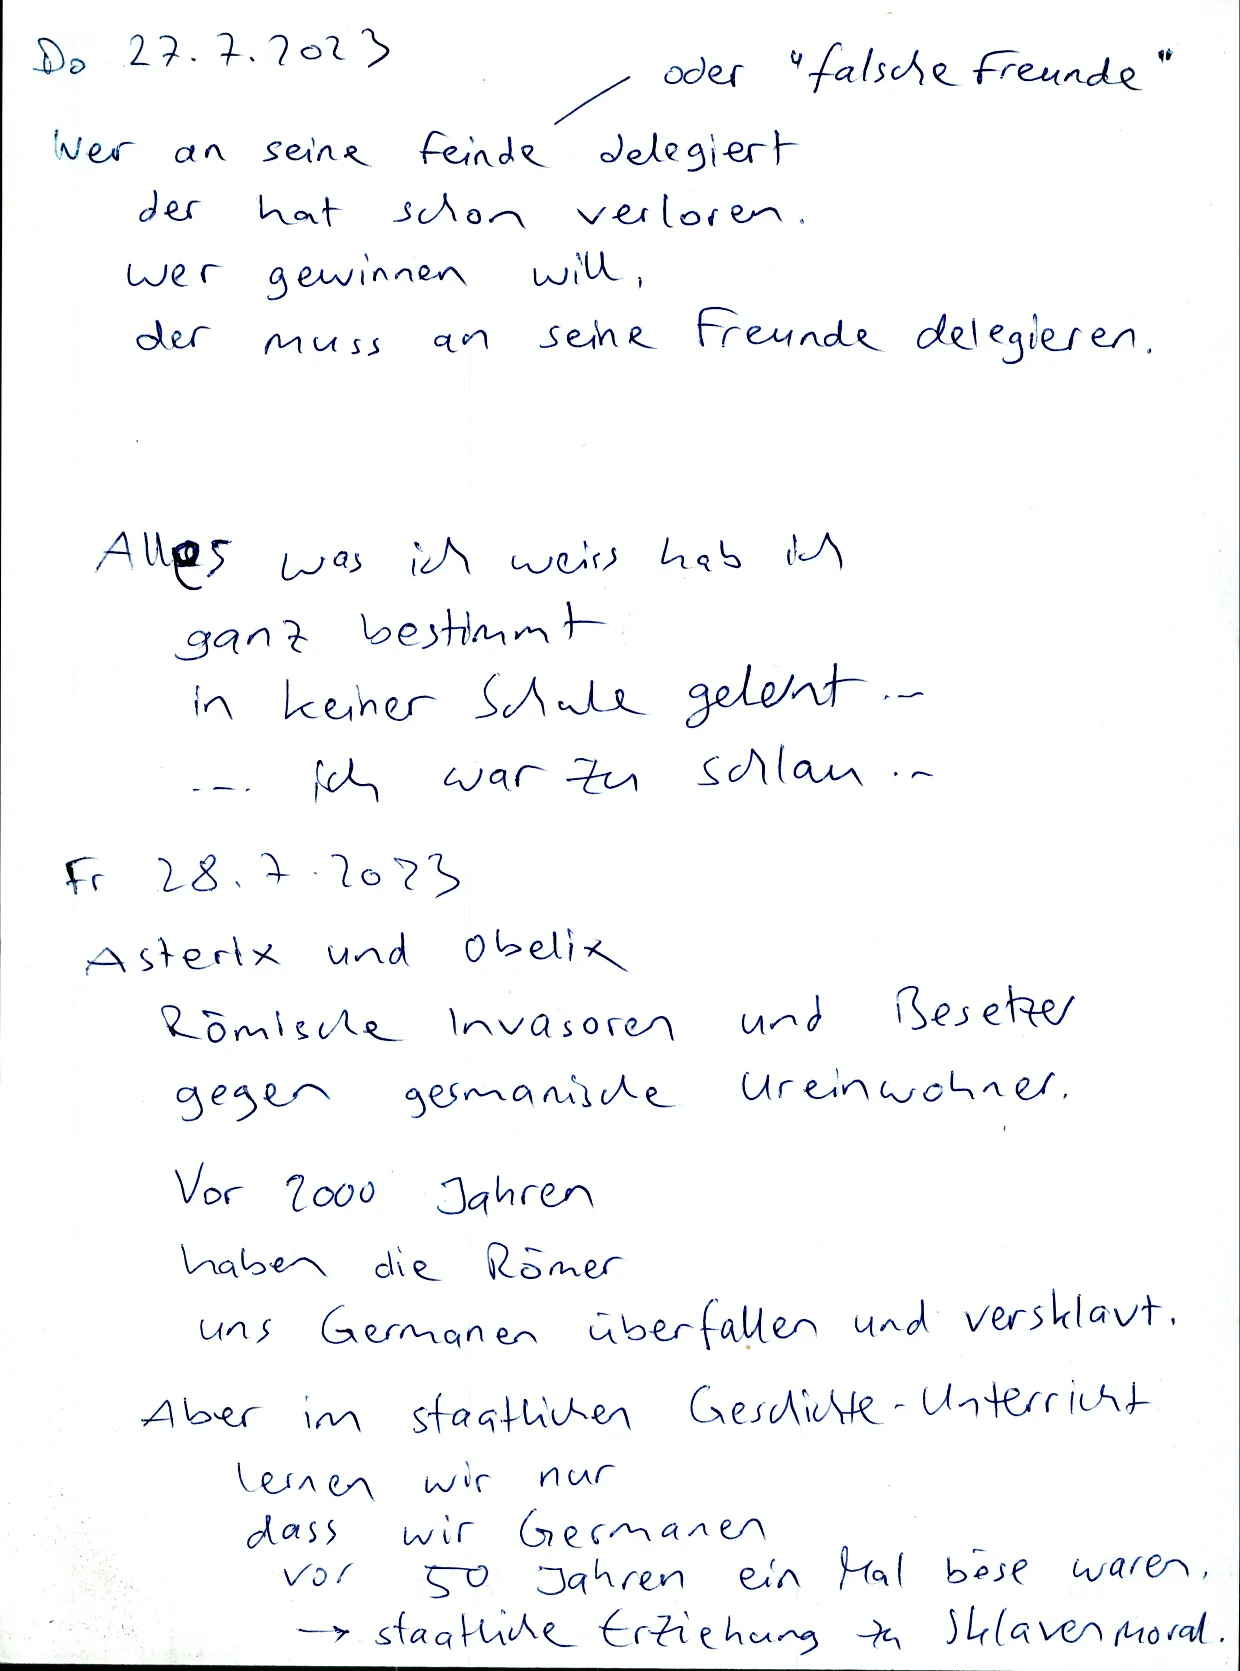 Do 27.7.2023
oder "falsche Freunde"
Wer an seine Feinde delegiert
der hat schon verloren.
wer gewinnen will,
der muss an seine Freunde delegieren.
Alles was ich weiss hab ich
ganz bestimmt
in keiner Schule gelernt ...
... ich war zu schlau ...
Fr 28.7.2023
Asterix und Obelix
Römische Invasoren und Besetzer
gegen germanische Ureinwohner.
Vor 2000 Jahren
haben die Römer
uns Germanen überfallen und versklavt.
Aber im staatlichen Geschichte-Unterricht
lernen wir nur
dass wir Germanen
vor 50 Jahren ein Mal böse waren.
→ staatliche Erziehung zu Sklavenmoral.